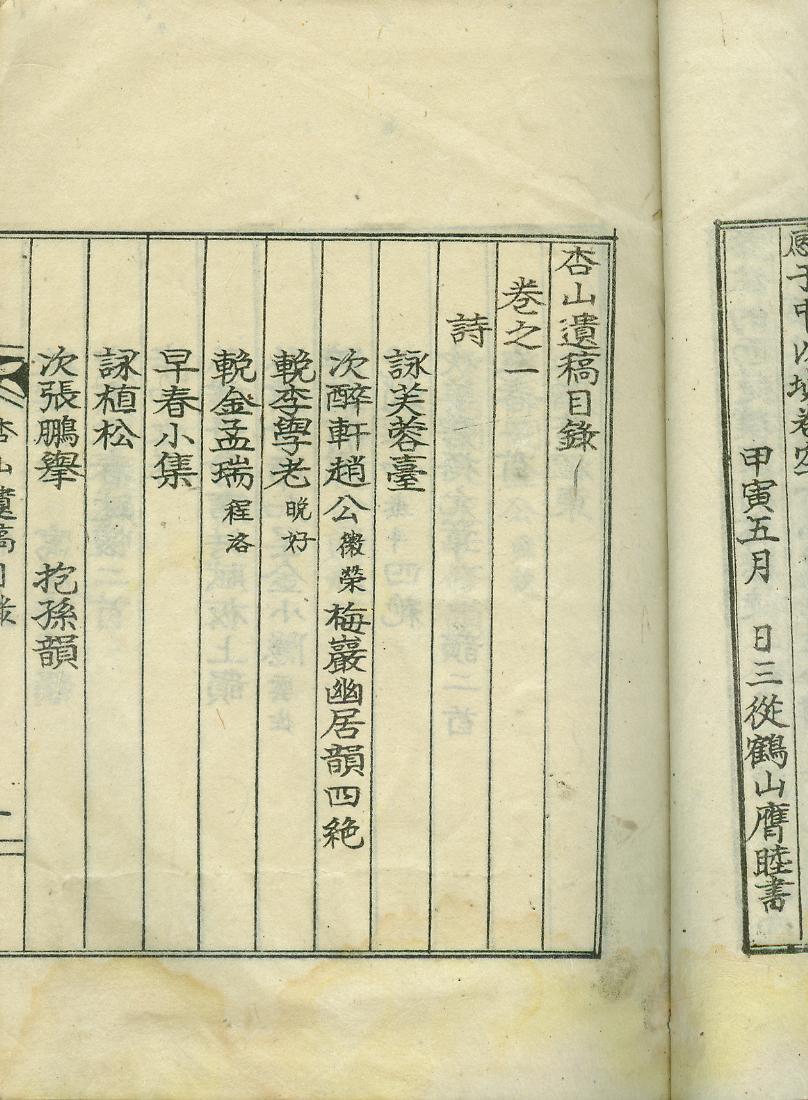 甲寅五月 日三從鶴山膺睦書
杏山遺稿目錄
卷之一
詩
詠芙蓉臺
次醉軒趙公徽榮梅巖幽居韻四絶
輓李學老晩好
輓金孟瑞程洛
早春小集
詠植松
次張鵬擧 抱孫韻
杏山遺稿目錄